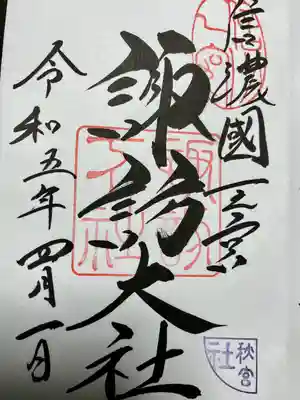 信濃國一之宮
諏訪大社
令和五年四月一日
諏訪
大社
秋宮
社